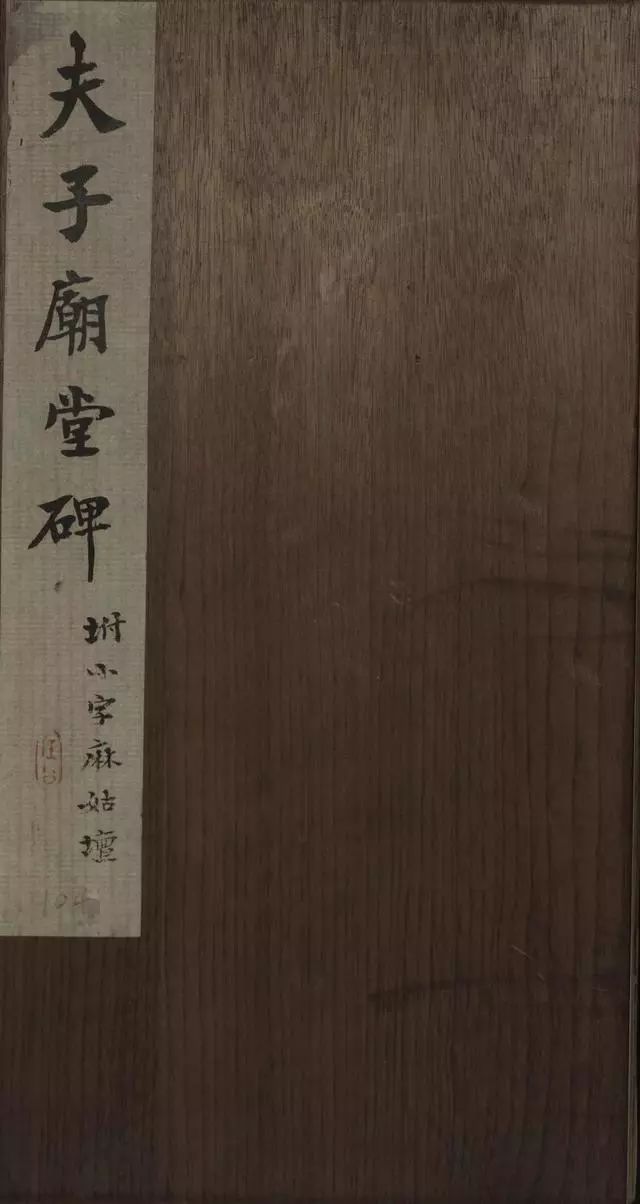 夫子廟堂碑
坿小字麻姑壇
104